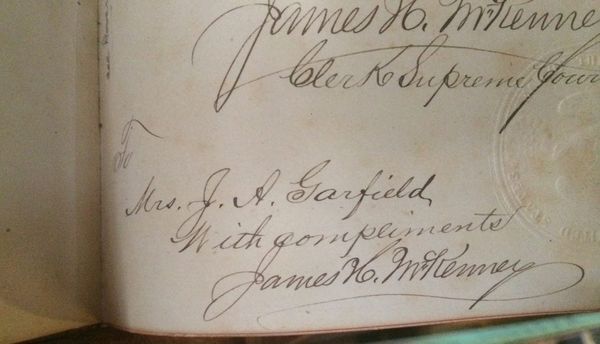 James H. McKenne
Clerk Supreme Cour
To
Mrs. J. A. Garfield
With compliments
James H. McKenney